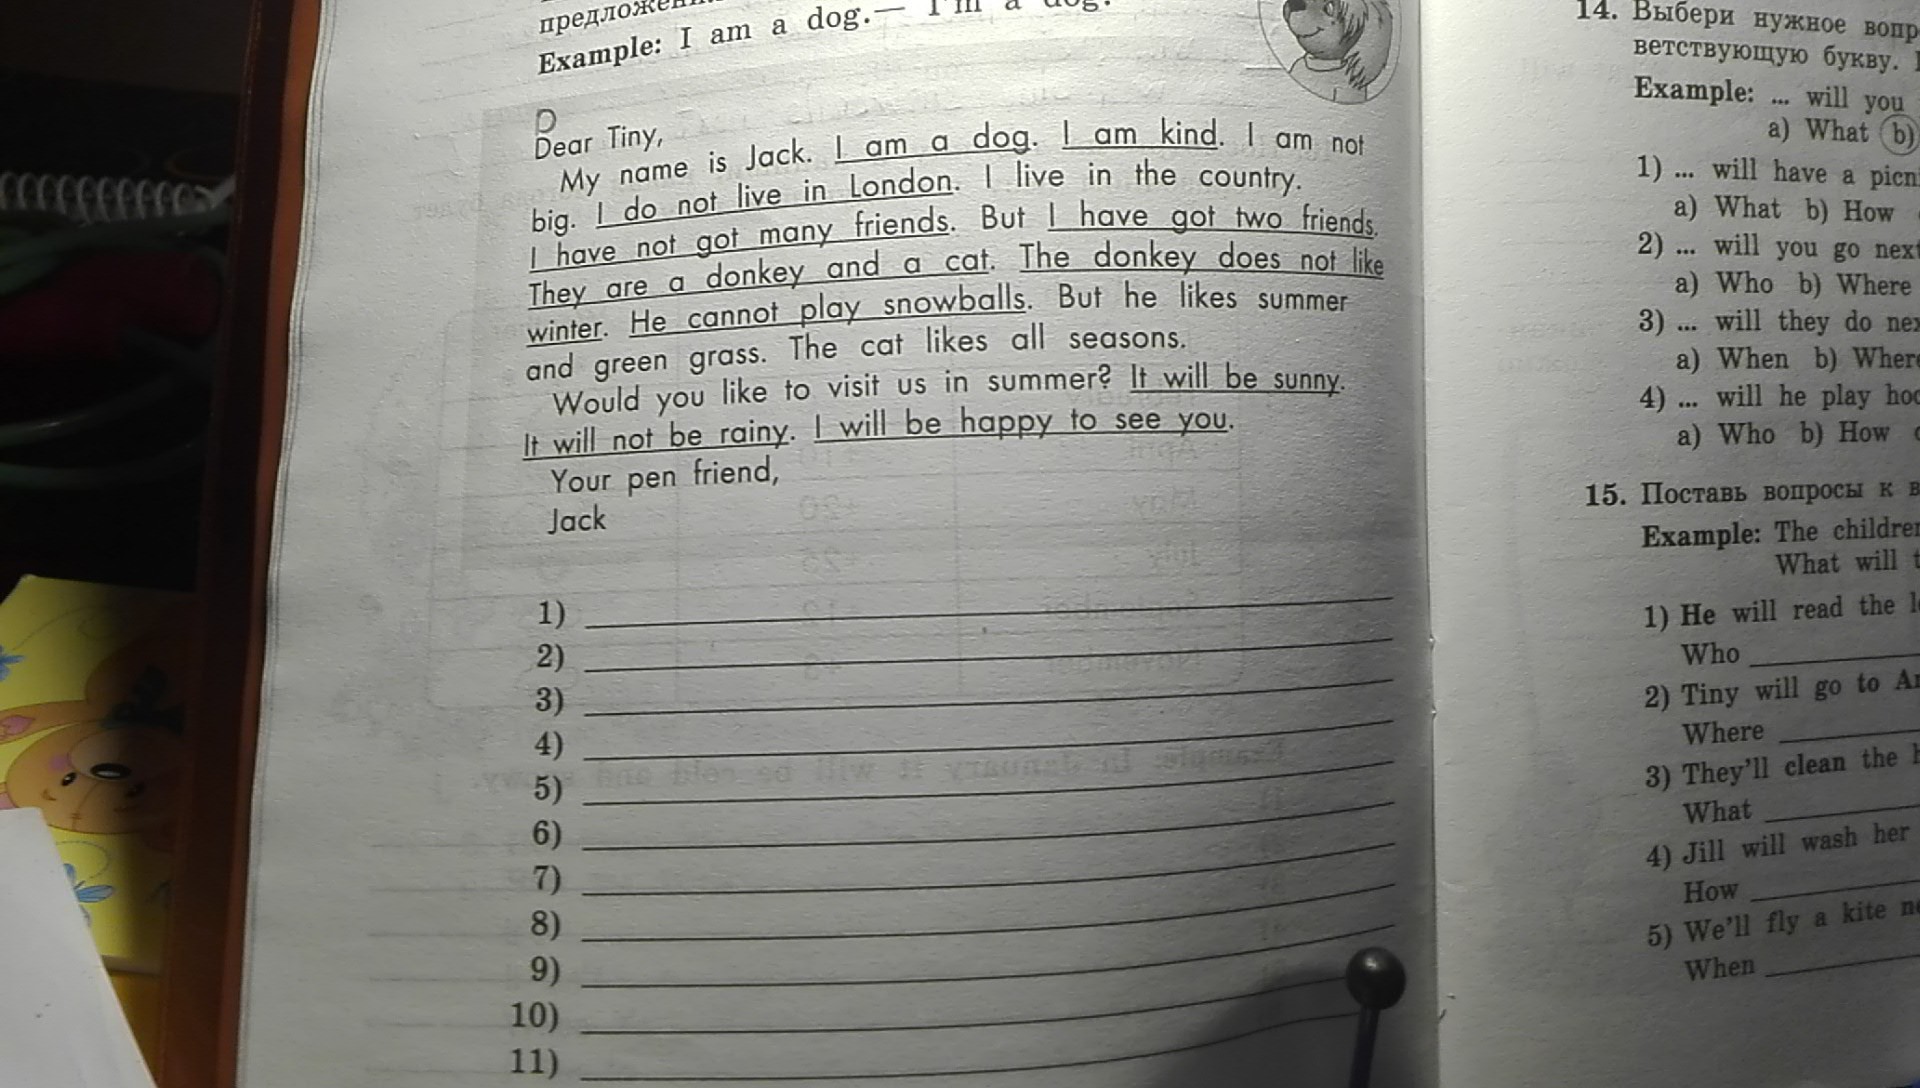 Example: I am a dog.— I'm a dog.
D
Dear Tiny,
My name is Jack. I am a dog. I am kind. I am not
big. I do not live in London. I live in the country.
I have not got many friends. But I have got two friends.
They are a donkey and a cat. The donkey does not like
winter. He cannot play snowballs. But he likes summer
and green grass. The cat likes all seasons.
Would you like to visit us in summer? It will be sunny.
It will not be rainy. I will be happy to see you.
Your pen friend,
Jack
1)
2)
3)
4)
5)
6)
7)
8)
9)
10)
11)
14. Выбери нужное
ветствующую букву.
Example: ... will you
a) What b)
1) ... will have a
a) What b) How
2) ... will you go
a) Who b) Where
3) ... will they do
a) When b)
4) ... will he play
a) Who b) How
15. Поставь вопросы к
Example: The
What will
1) He will read the
Who
2) Tiny will go to
Where
3) They'll clean the
What
4) Jill will wash her
How
5) We'll fly a kite
When